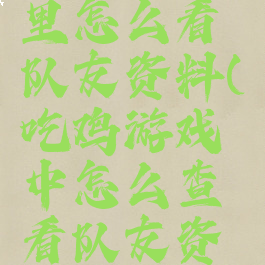 里怎么看
队友资料(
吃鸡游戏
中怎么查
看队友资